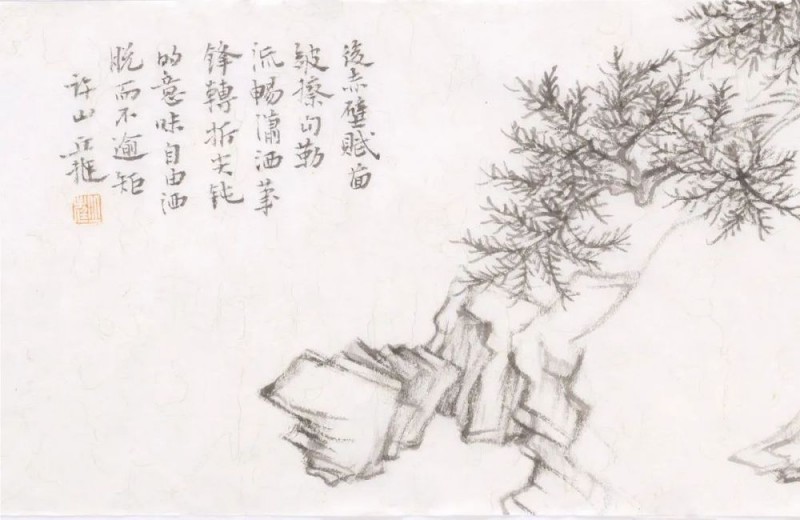 後赤壁賦面
皴擦勾勒
流暢瀟洒筆
鋒轉折尖鈍
的意味自由洒
脫而不逾矩
許山